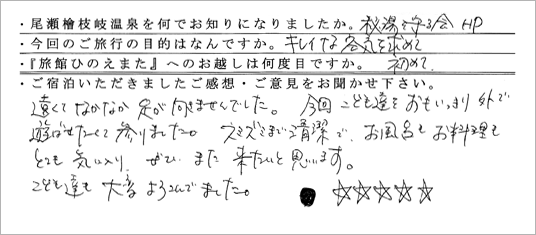 ・尾瀬檜枝岐温泉を何でお知りになりましたか。秘湯を守る会 HP
・今回のご旅行の目的はなんですか。キレイな空気を求めて
・『旅館ひのえまた』へのお越しは何度目ですか。初めて
・ご宿泊いただきましたご感想・ご意見をお聞かせ下さい。
遠くてなかなか足が向きませんでした。今回こども達をおもいっきり外で
遊ばせたくて参りました。スミズミまで清潔で、お風呂もお料理も
とても気に入り、ぜひ、また来たいと思います。
こども達も大変よろこんでました。 ● ☆☆☆☆☆